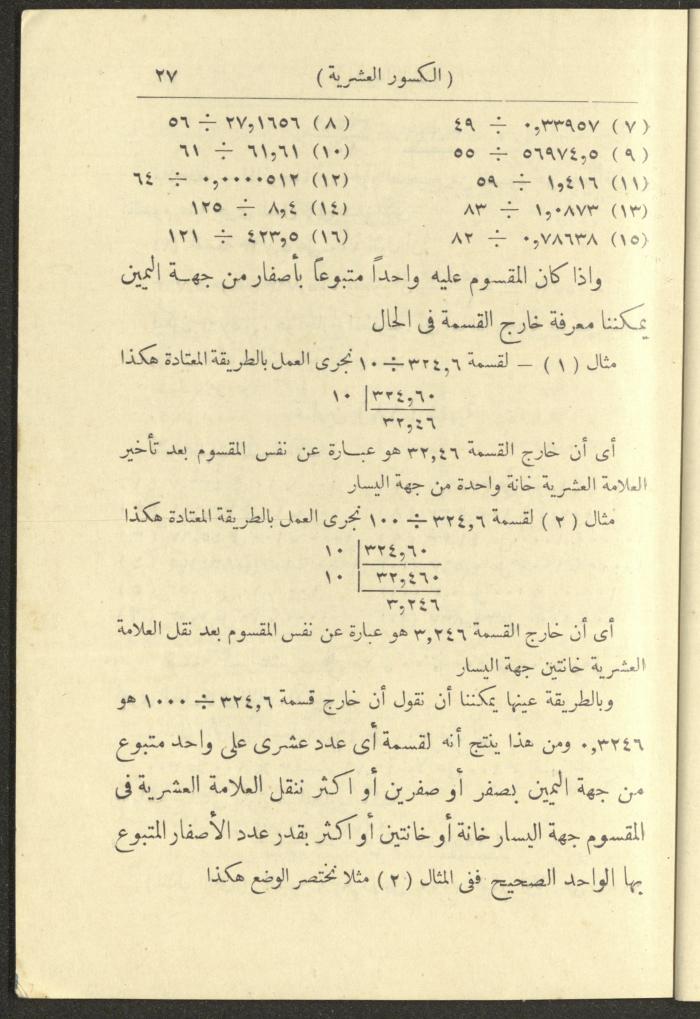 ( الكسور العشرية ) ٢٧
(٧) ٠٫٣٣٩٥٧ ÷ ٤٩ (٨) ٢٧٫١٦٥٦ ÷ ٥٦
(٩) ٥٦٩٧٤٫٥ ÷ ٥٥ (١٠) ٦١٫٦١ ÷ ٦١
(١١) ١٫٤١٦ ÷ ٥٩ (١٢) ٠٫٠٠٠٠٥١٢ ÷ ٦٤
(١٣) ١٫٠٨٧٣ ÷ ٨٣ (١٤) ٨٫٤ ÷ ١٢٥
(١٥) ٠٫٧٨٦٣٨ ÷ ٨٢ (١٦) ٤٢٣٫٥ ÷ ١٢١
واذا كان المقسوم عليه واحداً متبوعاً بأصفار من جهة اليمين
يمكننا معرفة خارج القسمة فى الحال
مثال (١) — لقسمة ٣٢٤٫٦ ÷ ١٠ نجرى العمل بالطريقة المعتادة هكذا
٣٢٤٫٦٠ | ١٠
٣٢٫٤٦
أى أن خارج القسمة ٣٢٫٤٦ هو عبارة عن نفس المقسوم بعد تأخير
العلامة العشرية خانة واحدة من جهة اليسار
مثال (٢) لقسمة ٣٢٤٫٦ ÷ ١٠٠ نجرى العمل بالطريقة المعتادة هكذا
٣٢٤٫٦٠ | ١٠
٣٢٫٤٦٠ | ١٠
٣٫٢٤٦
أى أن خارج القسمة ٣٫٢٤٦ هو عبارة عن نفس المقسوم بعد نقل العلامة
العشرية خانتين جهة اليسار
وبالطريقة عينها يمكننا أن نقول أن خارج قسمة ٣٢٤٫٦ ÷ ١٠٠٠ هو
٠٫٣٢٤٦ ومن هذا ينتج أنه لقسمة أى عدد عشرى على واحد متبوع
من جهة اليمين بصفر أو صفرين أو اكثر ننقل العلامة العشرية فى
المقسوم جهة اليسار خانة أو خانتين أو اكثر بقدر عدد الأصفار المتبوع
بها الواحد الصحيح ففى المثال (٢) مثلا نختصر الوضع هكذا